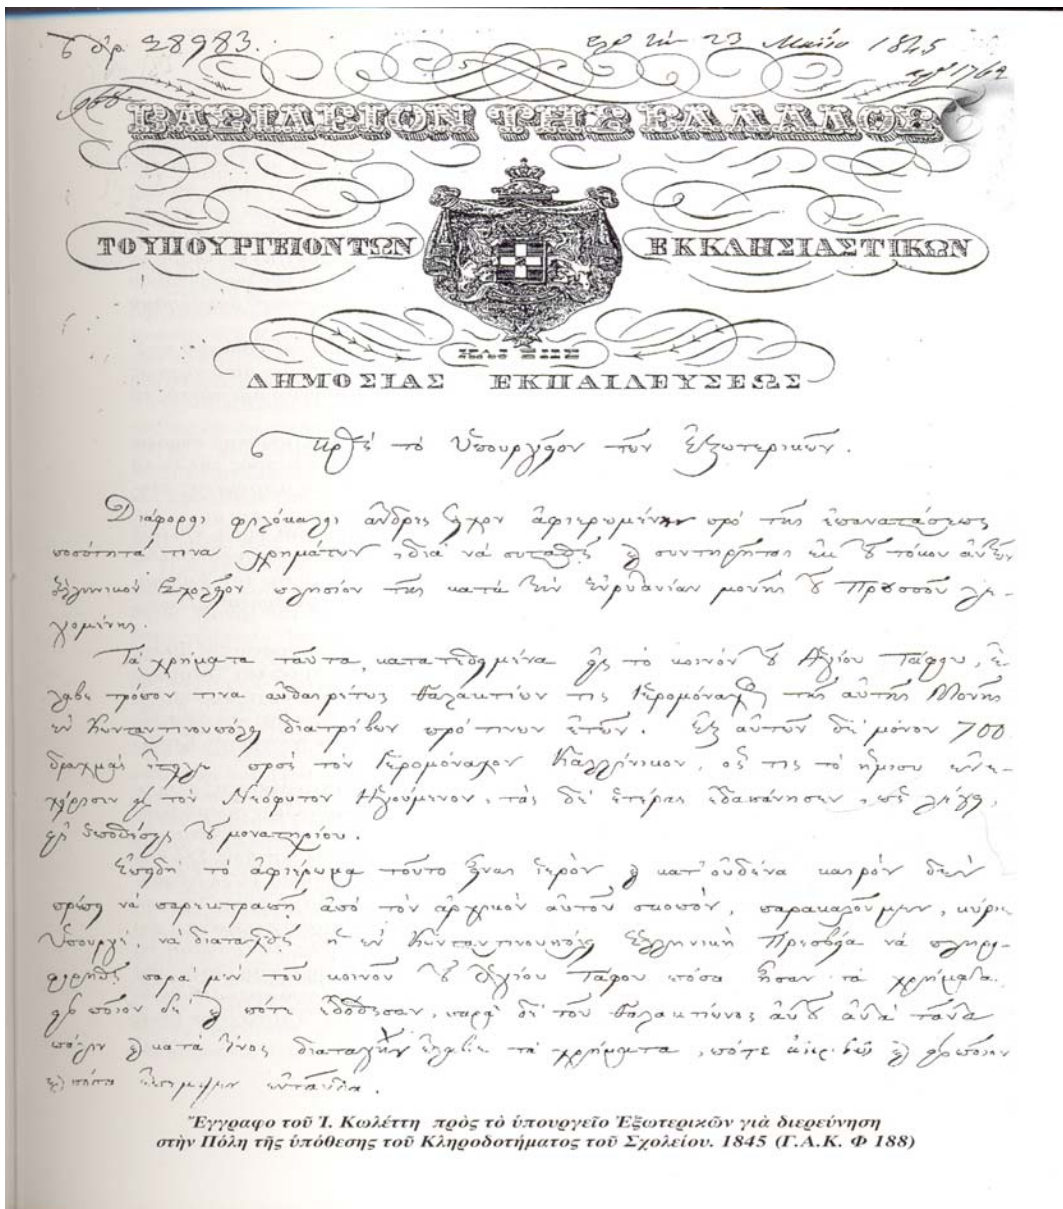 ἀρ. 28983.
τὴν 23 Μαΐου 1845
1762
ΒΑΣΙΛΕΙΟΝ ΤΗΣ ΕΛΛΑΔΟΣ
ΤΟ ΥΠΟΥΡΓΕΙΟΝ ΤΩΝ ΕΚΚΛΗΣΙΑΣΤΙΚΩΝ
ΚΑΙ ΤΗΣ
ΔΗΜΟΣΙΑΣ ΕΚΠΑΙΔΕΥΣΕΩΣ
Πρὸς τὸ Ὑπουργεῖον τῶν Ἐξωτερικῶν.
Διάφοροι φιλόκαλοι ἄνδρες εἶχον ἀφιερωμένην πρὸ τῆς ἐπαναστάσεως
ποσότητά τινα χρημάτων, διὰ νὰ συσταθῇ καὶ συντηρῆται ἐκ τοῦ τόκου
ἑλληνικὸν Σχολεῖον πλησίον τῆς κατὰ τὴν Εὐρυτανίαν μονῆς τοῦ Προυσσοῦ λε-
γομένης.
Τὰ χρήματα ταῦτα, κατατεθειμένα εἰς τὸ κοινὸν τοῦ Ἁγίου Τάφου, ἔ-
λαβε τρόπον τινα αὐθαιρέτως Γαλακτίων τις Ἱερομόναχος τῆς αὐτῆς Μονῆς
ἐν Κωνσταντινουπόλει διατρίβων πρό τινων ἐτῶν. Ἐξ αὐτῶν δὲ μόνον 700
δραχμὰς ἔστειλε πρὸς τὸν Ἱερομόναχον Καλλίνικον, ὅς τις τὸ ἥμισυ ἐνε-
χείρισεν εἰς τὸν Νεόφυτον Ἡγούμενον, τὰς δὲ ἑτέρας ἐδαπάνησεν, ὡς λέγει,
εἰς ὑποθέσεις τοῦ μοναστηρίου.
Ἐπειδὴ τὸ ἀφιέρωμα τοῦτο εἶναι ἱερὸν καὶ κατ' οὐδένα καιρὸν δὲν
πρέπει νὰ παρεκτραπῇ ἀπὸ τὸν ἀρχικὸν αὐτοῦ σκοπὸν, παρακαλοῦμεν, κύριε
Ὑπουργέ, νὰ διαταχθῇ ἡ ἐν Κωνσταντινουπόλει Ἑλληνικὴ Πρεσβεία νὰ πληρο-
φορηθῇ παρὰ μὲν τοῦ κοινοῦ τοῦ Ἁγίου Τάφου πόσα ἦσαν τὰ χρήματα
εἰς ποῖον δὲ καὶ πότε ἐδόθησαν, παρὰ δὲ τοῦ Γαλακτίωνος αὐτοῦ αὐτὰ ταῦτα
πάλιν καὶ κατὰ τίνος διαταγὴν ἔλαβε τὰ χρήματα, πότε ἀκριβῶς καὶ εἰς ποῖον
καὶ πόσα ἔπεμψεν ἐνταῦθα.
Ἔγγραφο τοῦ Ἰ. Κωλέττη πρὸς τὸ ὑπουργεῖο Ἐξωτερικῶν γιὰ διερεύνηση
στὴν Πόλη τῆς ὑπόθεσης τοῦ Κληροδοτήματος τοῦ Σχολείου. 1845 (Γ.Α.Κ. Φ 188)